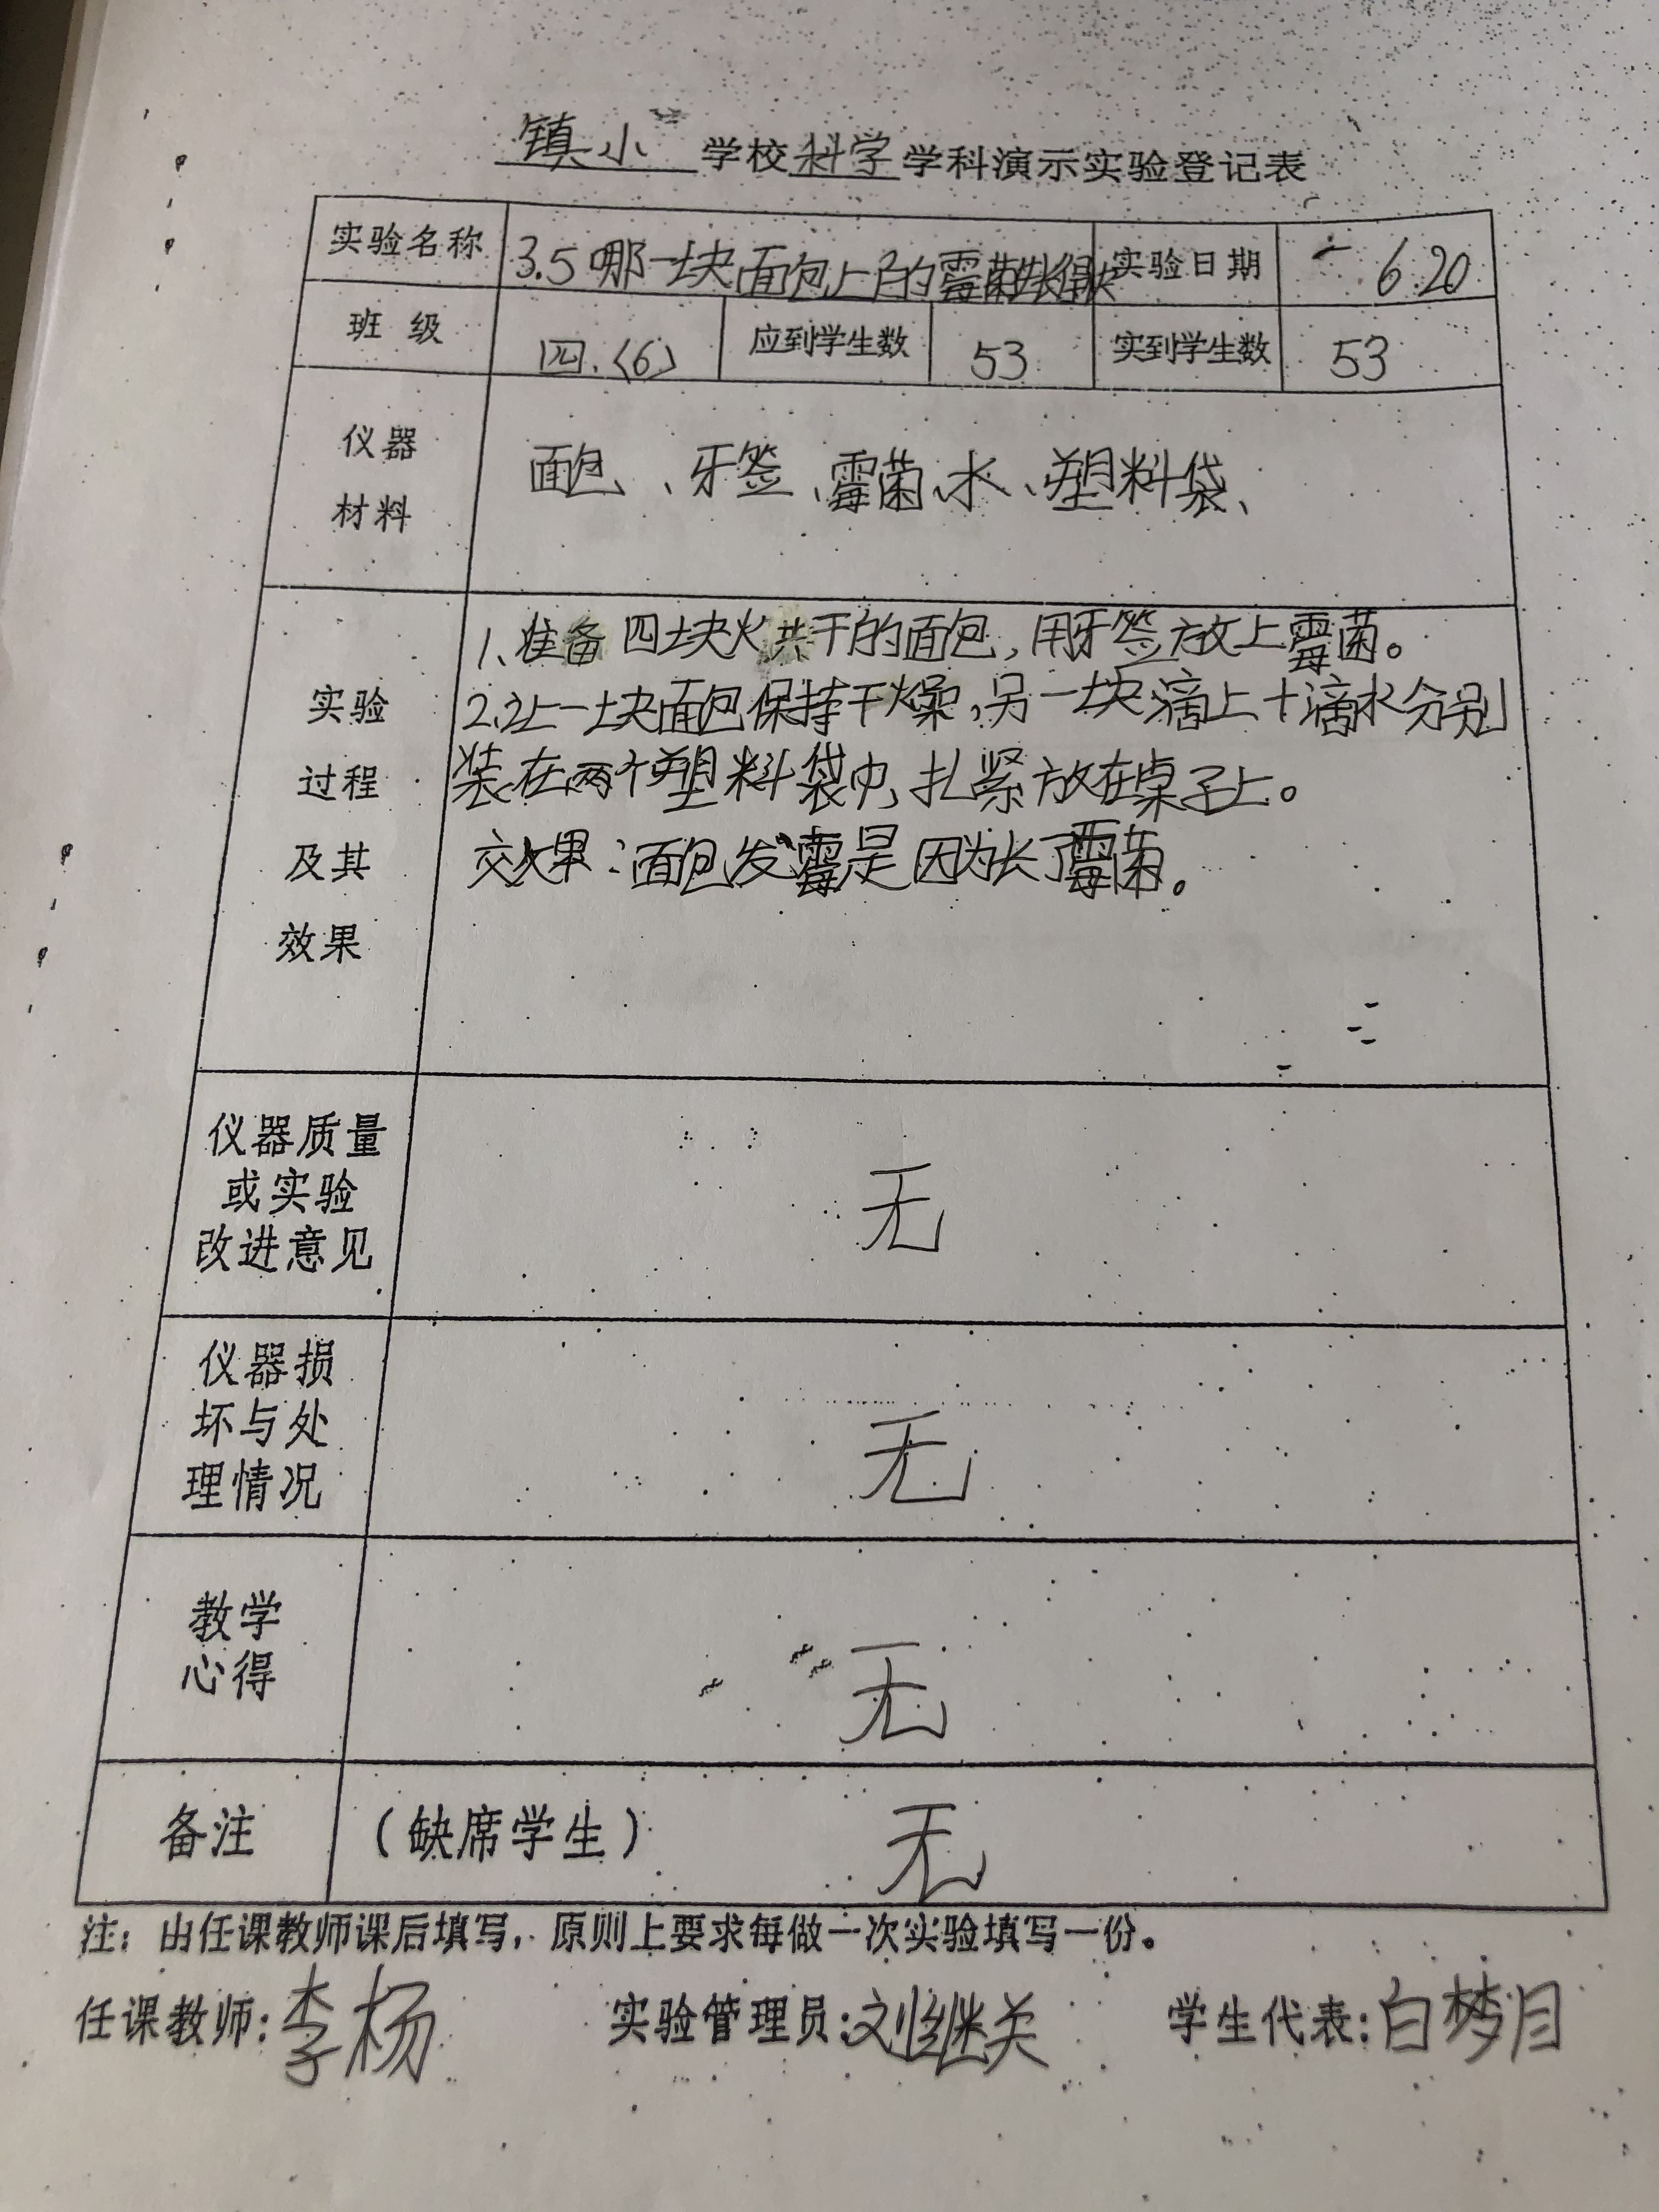 镇小 学校 科学 学科演示实验登记表
实验名称 3.5哪一块面包上的霉菌长得快 实验日期 6.20
班 级 四.(6) 应到学生数 53 实到学生数 53
仪器
材料
面包、牙签、霉菌、水、塑料袋、
实验
过程
及其
效果
1、准备四块烘干的面包,用牙签放上霉菌。
2.让一块面包保持干燥,另一块滴上十滴水分别
装在两个塑料袋中,扎紧放在桌子上。
效果:面包发霉是因为长了霉菌。
仪器质量
或实验
改进意见
无
仪器损
坏与处
理情况
无
教学
心得
无
备注 (缺席学生) 无
注:由任课教师课后填写,原则上要求每做一次实验填写一份。
任课教师:李杨 实验管理员:刘继关 学生代表:白梦月